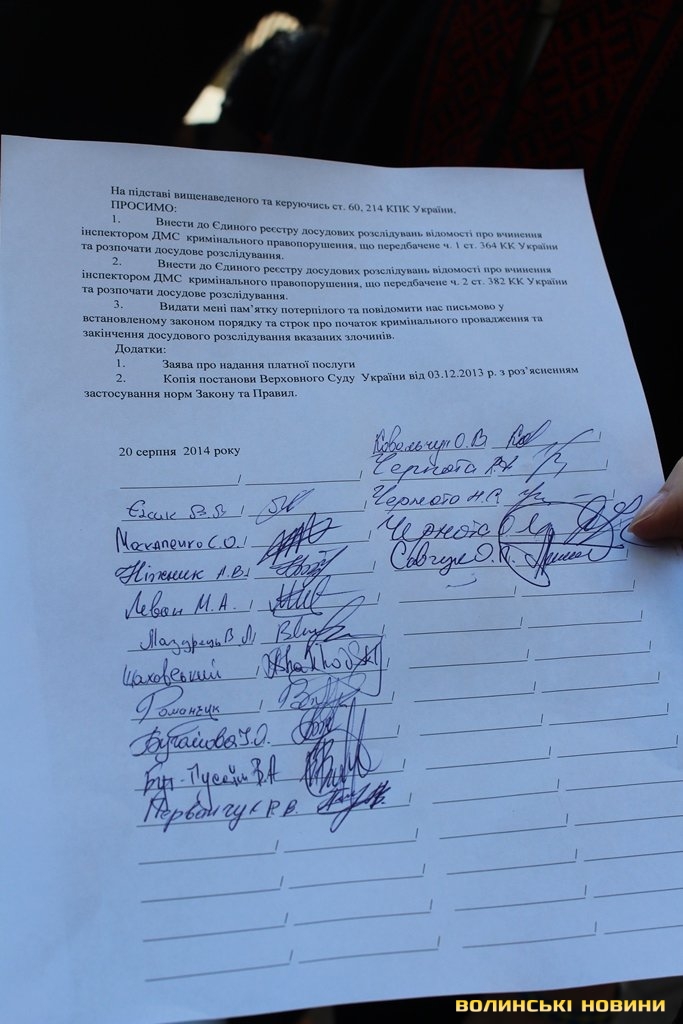 На підставі вищенаведеного та керуючись ст. 60, 214 КПК України,
ПРОСИМО:
1. Внести до Єдиного реєстру досудових розслідувань відомості про вчинення
інспектором ДМС кримінального правопорушення, що передбачене ч. 1 ст. 364 КК України
та розпочати досудове розслідування.
2. Внести до Єдиного реєстру досудових розслідувань відомості про вчинення
інспектором ДМС кримінального правопорушення, що передбачене ч. 2 ст. 382 КК України
та розпочати досудове розслідування.
3. Видати мені пам'ятку потерпілого та повідомити нас письмово у
встановленому законом порядку та строк про початок кримінального провадження та
закінчення досудового розслідування вказаних злочинів.
Додатки:
1. Заява про надання платної послуги
2. Копія постанови Верховного Суду України від 03.12.2013 р. з роз'ясненням
застосування норм Закону та Правил.
20 серпня 2014 року
Макапенко С.О.
Ніжник А.В.
Леван М.А.
Мазурець В.Л.
Щаховський
Романчук
Первачук В.В.
Ковальчук О.В.
Чернота
Чернота Н.Р.
Чернота О
Савчук О.П.
ВОЛИНСЬКІ НОВИНИ